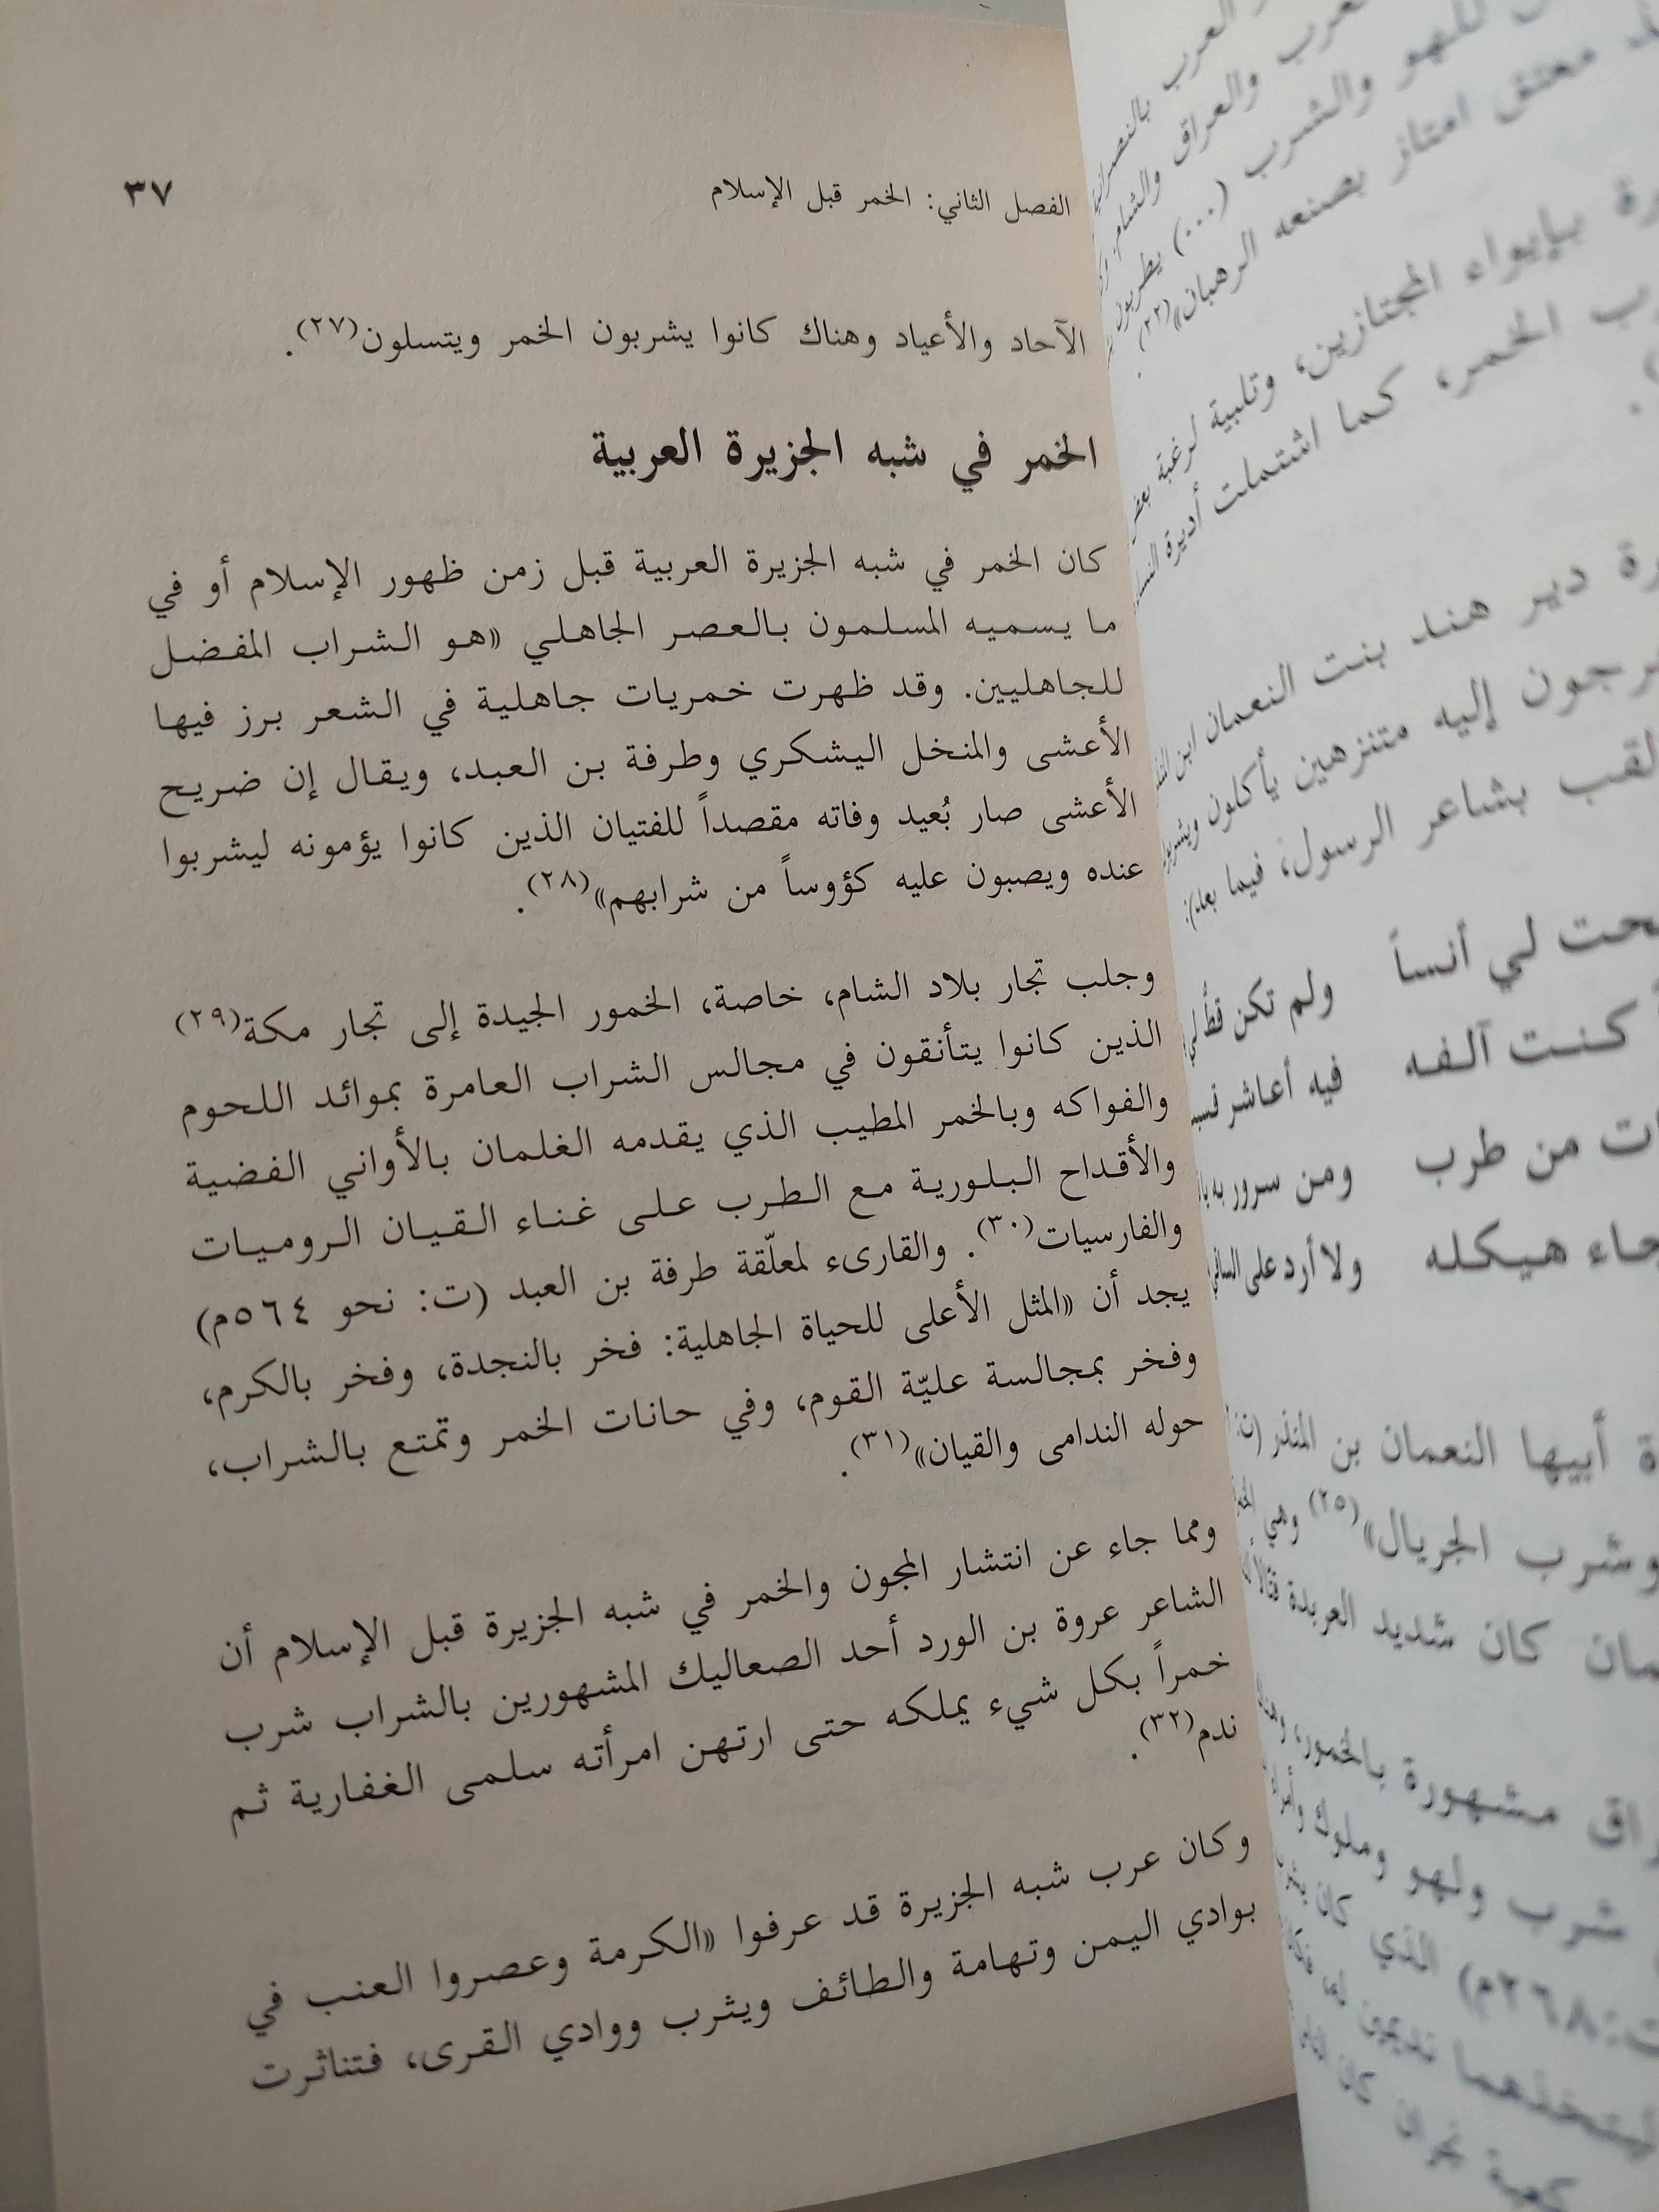 الفصل الثاني: الخمر قبل الإسلام ٣٧
الآحاد والأعياد وهناك كانوا يشربون الخمر ويتسلون(٢٧).
الخمر في شبه الجزيرة العربية
كان الخمر في شبه الجزيرة العربية قبل زمن ظهور الإسلام أو في
ما يسميه المسلمون بالعصر الجاهلي «هو الشراب المفضل
للجاهليين. وقد ظهرت خمريات جاهلية في الشعر برز فيها
الأعشى والمنخل اليشكري وطرفة بن العبد، ويقال إن ضريح
الأعشى صار بُعيد وفاته مقصداً للفتيان الذين كانوا يؤمونه ليشربوا
عنده ويصبون عليه كؤوساً من شرابهم»(٢٨).
وجلب تجار بلاد الشام، خاصة، الخمور الجيدة إلى تجار مكة(٢٩)
الذين كانوا يتأنقون في مجالس الشراب العامرة بموائد اللحوم
والفواكه وبالخمر المطيب الذي يقدمه الغلمان بالأواني الفضية
والأقداح البلورية مع الطرب على غناء القيان الروميات
والفارسيات(٣٠). والقارىء لمعلّقة طرفة بن العبد (ت: نحو ٥٦٤م)
يجد أن «المثل الأعلى للحياة الجاهلية: فخر بالنجدة، وفخر بالكرم،
وفخر بمجالسة عليّة القوم، وفي حانات الخمر وتمتع بالشراب،
حوله الندامى والقيان»(٣١).
ومما جاء عن انتشار المجون والخمر في شبه الجزيرة قبل الإسلام أن
الشاعر عروة بن الورد أحد الصعاليك المشهورين بالشراب شرب
خمراً بكل شيء يملكه حتى ارتهن امرأته سلمى الغفارية ثم
ندم(٣٢).
وكان عرب شبه الجزيرة قد عرفوا «الكرمة وعصروا العنب في
بوادي اليمن وتهامة والطائف ويثرب ووادي القرى، فتناثرت
العرب بالنصرانية
والعراق والشام
للهو والشرب (...) يطربون
معتق امتاز بصنعه الرهبان»(٢٢).
بإيواء المجتازين، وتلبية لرغبة
الخمر، كما اشتملت أديرة
دير هند بنت النعمان ابن
إليه متنزهين يأكلون
بشاعر الرسول، فيما بعد):
لي أنساً ولم تكن قطُّ
كنت آلفه فيه أعاشر
من طرب ومن سرور
هيكله ولا أرد على
أبيها النعمان بن المنذر (ت:
وشرب الجريال»(٢٥) وهي
كان شديد العربدة
مشهورة بالخمور،
شرب ولهو وملوك
٢٦٨م) الذي كان